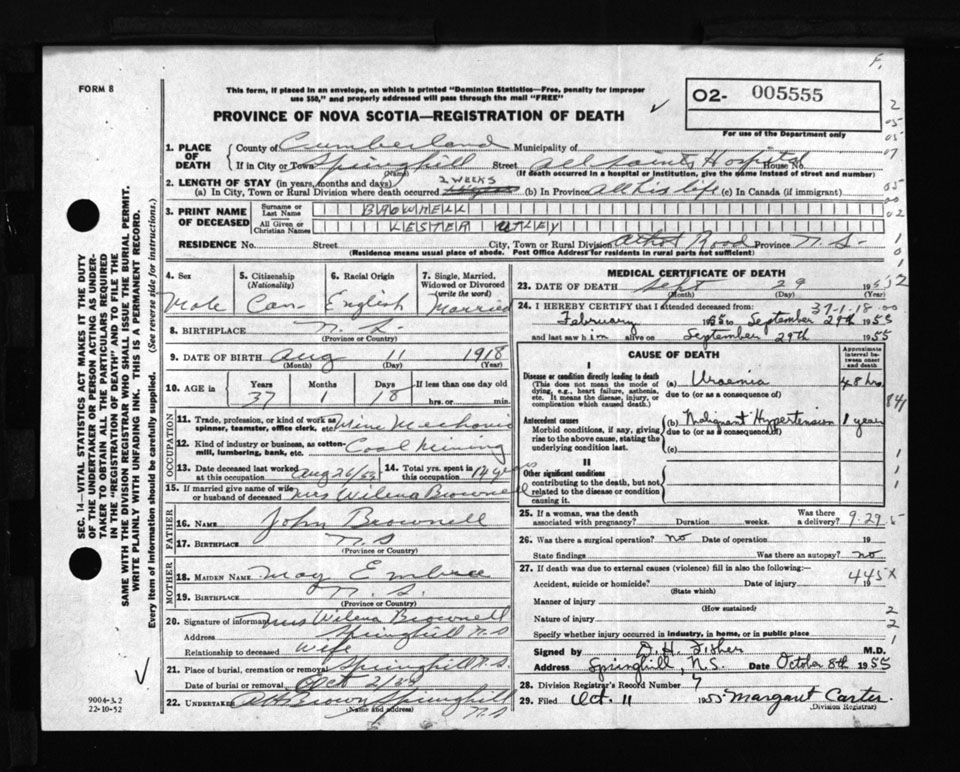 F.
FORM 8
This form, if placed in an envelope, on which is printed "Dominion Statistics—Free, penalty for improper
use $50," and properly addressed will pass through the mail "FREE"
02- 005555
For use of the Department only
PROVINCE OF NOVA SCOTIA—REGISTRATION OF DEATH
1. PLACE OF DEATH
County of Cumberland Municipality of
If in City or Town Springhill Street All Saints Hospital House No
(Name) (If death occurred in a hospital or institution, give the name instead of street and number)
2. LENGTH OF STAY (in years, months and days) 2 WEEKS
(a) In City, Town or Rural Division where death occurred (b) In Province all his life (c) In Canada (if immigrant)
3. PRINT NAME OF DECEASED
Surname or Last Name BROWNELL
All Given or Christian Names LESTER UTLEY
RESIDENCE No. Street City, Town or Rural Division Athol Road Province N.S.
(Residence means usual place of abode. Post Office Address for residents in rural parts not sufficient)
4. Sex Male
5. Citizenship (Nationality) Can-
6. Racial Origin English
7. Single, Married, Widowed or Divorced (write the word) Married
8. BIRTHPLACE N.S.
(Province or Country)
9. DATE OF BIRTH Aug 11 1918
(Month) (Day) (Year)
10. AGE in Years Months Days If less than one day old
37 1 18 hrs. or min.
OCCUPATION
11. Trade, profession, or kind of work as spinner, teamster, office clerk, etc. Mine Mechanic
12. Kind of industry or business, as cotton-mill, lumbering, bank, etc. Coal Mining
13. Date deceased last worked at this occupation Aug 26/55
14. Total yrs. spent in this occupation 14 years
15. If married give name of wife or husband of deceased Mrs Wilena Brownell
FATHER
16. NAME John Brownell
17. BIRTHPLACE N.S
(Province or Country)
MOTHER
18. MAIDEN NAME May Embree
19. BIRTHPLACE N.S.
(Province or Country)
20. Signature of informant Mrs Wilena Brownell
Address Springhill N.S
Relationship to deceased Wife
21. Place of burial, cremation or removal Springhill N.S.
Date of burial or removal Oct 2/55
22. UNDERTAKER A H Brown Springhill
(Name and address) N.S
MEDICAL CERTIFICATE OF DEATH
23. DATE OF DEATH Sept 29 195
(Month) (Day) (Year)
37-1-18
24. I HEREBY CERTIFY that I attended deceased from:
February 1955 to September 29th 1955
and last saw him alive on September 29th 1955
CAUSE OF DEATH
Approximate interval between onset and death
I
Disease or condition directly leading to death
(This does not mean the mode of dying, e.g., heart failure, asthenia, etc. It means the disease, injury, or complication which caused death.)
(a) Uraemia 48 hrs.
due to (or as a consequence of)
Antecedent causes
Morbid conditions, if any, giving rise to the above cause, stating the underlying condition last.
(b) Malignant Hypertension 1 year
due to (or as a consequence of)
(c)
II
Other significant conditions
contributing to the death, but not related to the disease or condition causing it.
25. If a woman, was the death associated with pregnancy? Duration weeks. Was there a delivery? 9-29
26. Was there a surgical operation? no Date of operation 19
State findings Was there an autopsy? no
27. If death was due to external causes (violence) fill in also the following:— 445X
Accident, suicide or homicide? Date of injury 19
(State which)
Manner of injury
(How sustained)
Nature of injury
Specify whether injury occurred in industry, in home, or in public place
Signed by D. H. Fisher M.D.
Address Springhill, N.S. Date October 8th 1955
28. Division Registrar's Record Number
29. Filed Oct. 11 1955 Margaret Carter
(Division Registrar)
SEC. 14—VITAL STATISTICS ACT MAKES IT THE DUTY
OF THE UNDERTAKER OR PERSON ACTING AS UNDER-
TAKER TO OBTAIN ALL THE PARTICULARS REQUIRED
IN THE "REGISTRATION OF DEATH" AND TO FILE THE
SAME WITH THE DIVISION REGISTRAR WHO SHALL ISSUE THE BURIAL PERMIT.
WRITE PLAINLY WITH UNFADING INK. THIS IS A PERMANENT RECORD.
Every item of information should be carefully supplied. (See reverse side for instructions.)
9004-3.2
22-10-52